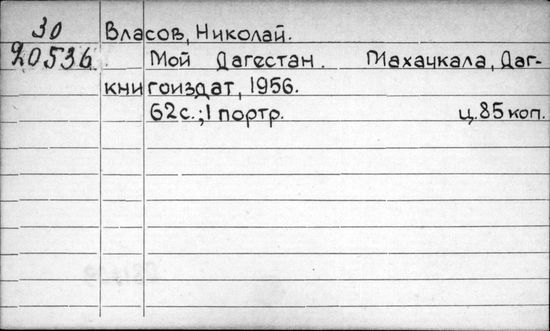 30
20536
Власов, Николай.
Мой Дагестан. Махачкала, Даг-
книгоиздат, 1956.
62с.; 1 портр. ц. 85 коп.